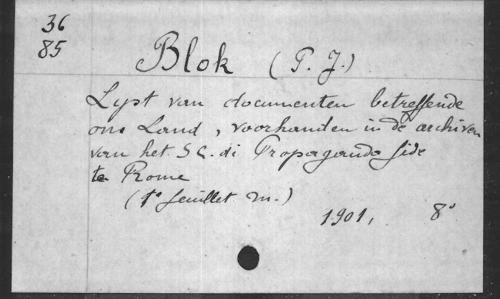 36
85
Blok (P. J.)
Lyst van documenten betreffende
ons Land, voorhanden in de archiven
van het S C. di Propaganda fide
te Rome
(1e feuillet m.)
1901, 8°